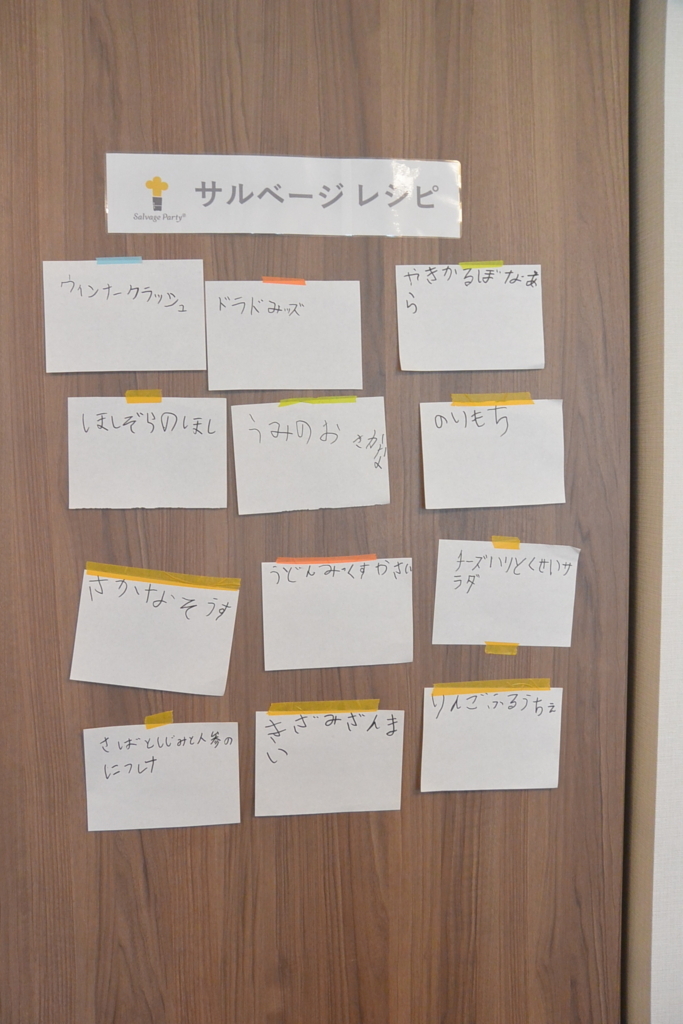 サルベージ レシピ
Salvage Party®
ウィンナークラッシュ
ドラドみッズ
やきかるぼなあ
ら
ほしぞらのほし
うみのお さかな
のりもち
さかなそうす
うどんみっくすかさい
チーズいりとくせいサ
ラダ
さばとしじみと人参の
につけ
きざみざんま
い
りんごふるうちぇ